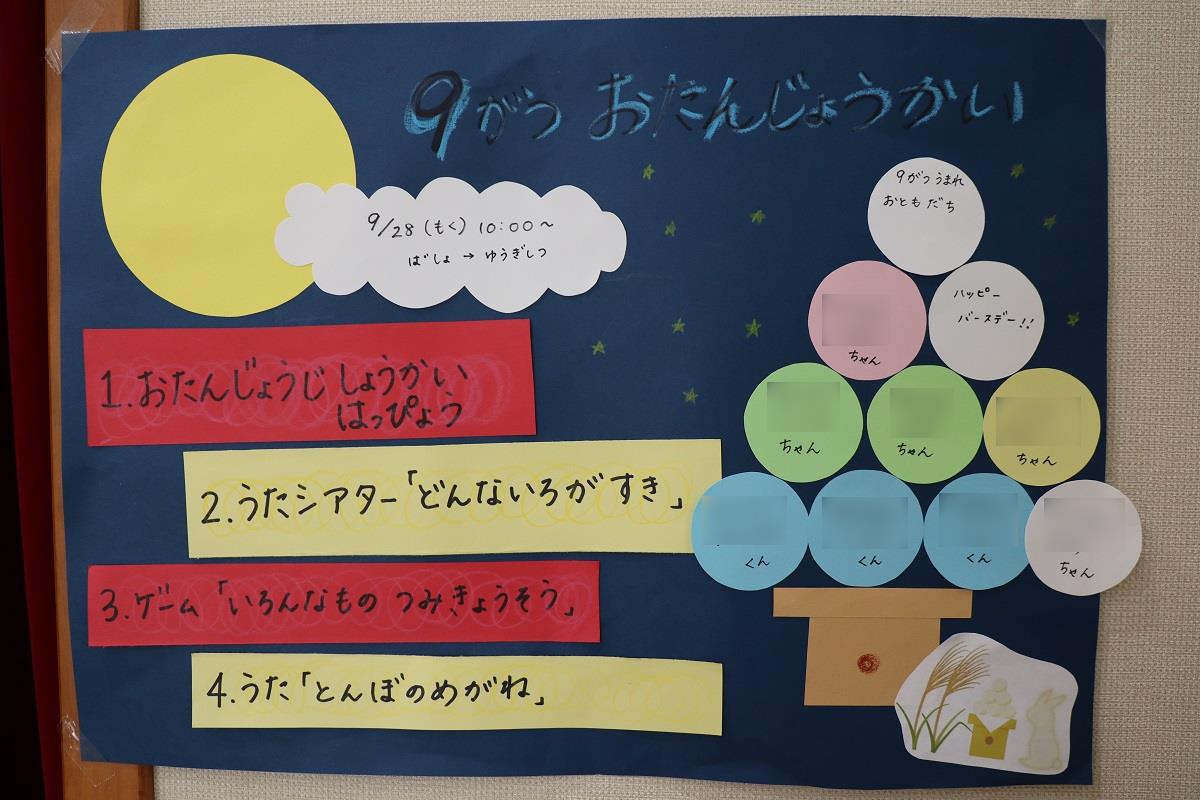 9がつ おたんじょうかい
9/28 (もく) 10:00～
ばしょ → ゆうぎしつ
1.おたんじょうじ しょうかい
はっぴょう
2.うたシアター「どんないろが すき」
3.ゲーム「いろんなもの つみきょうそう」
4.うた「とんぼのめがね」
9がつ うまれ
おともだち
ハッピー
バースデー!!
ちゃん
ちゃん
ちゃん
ちゃん
くん
くん
くん
ちゃん